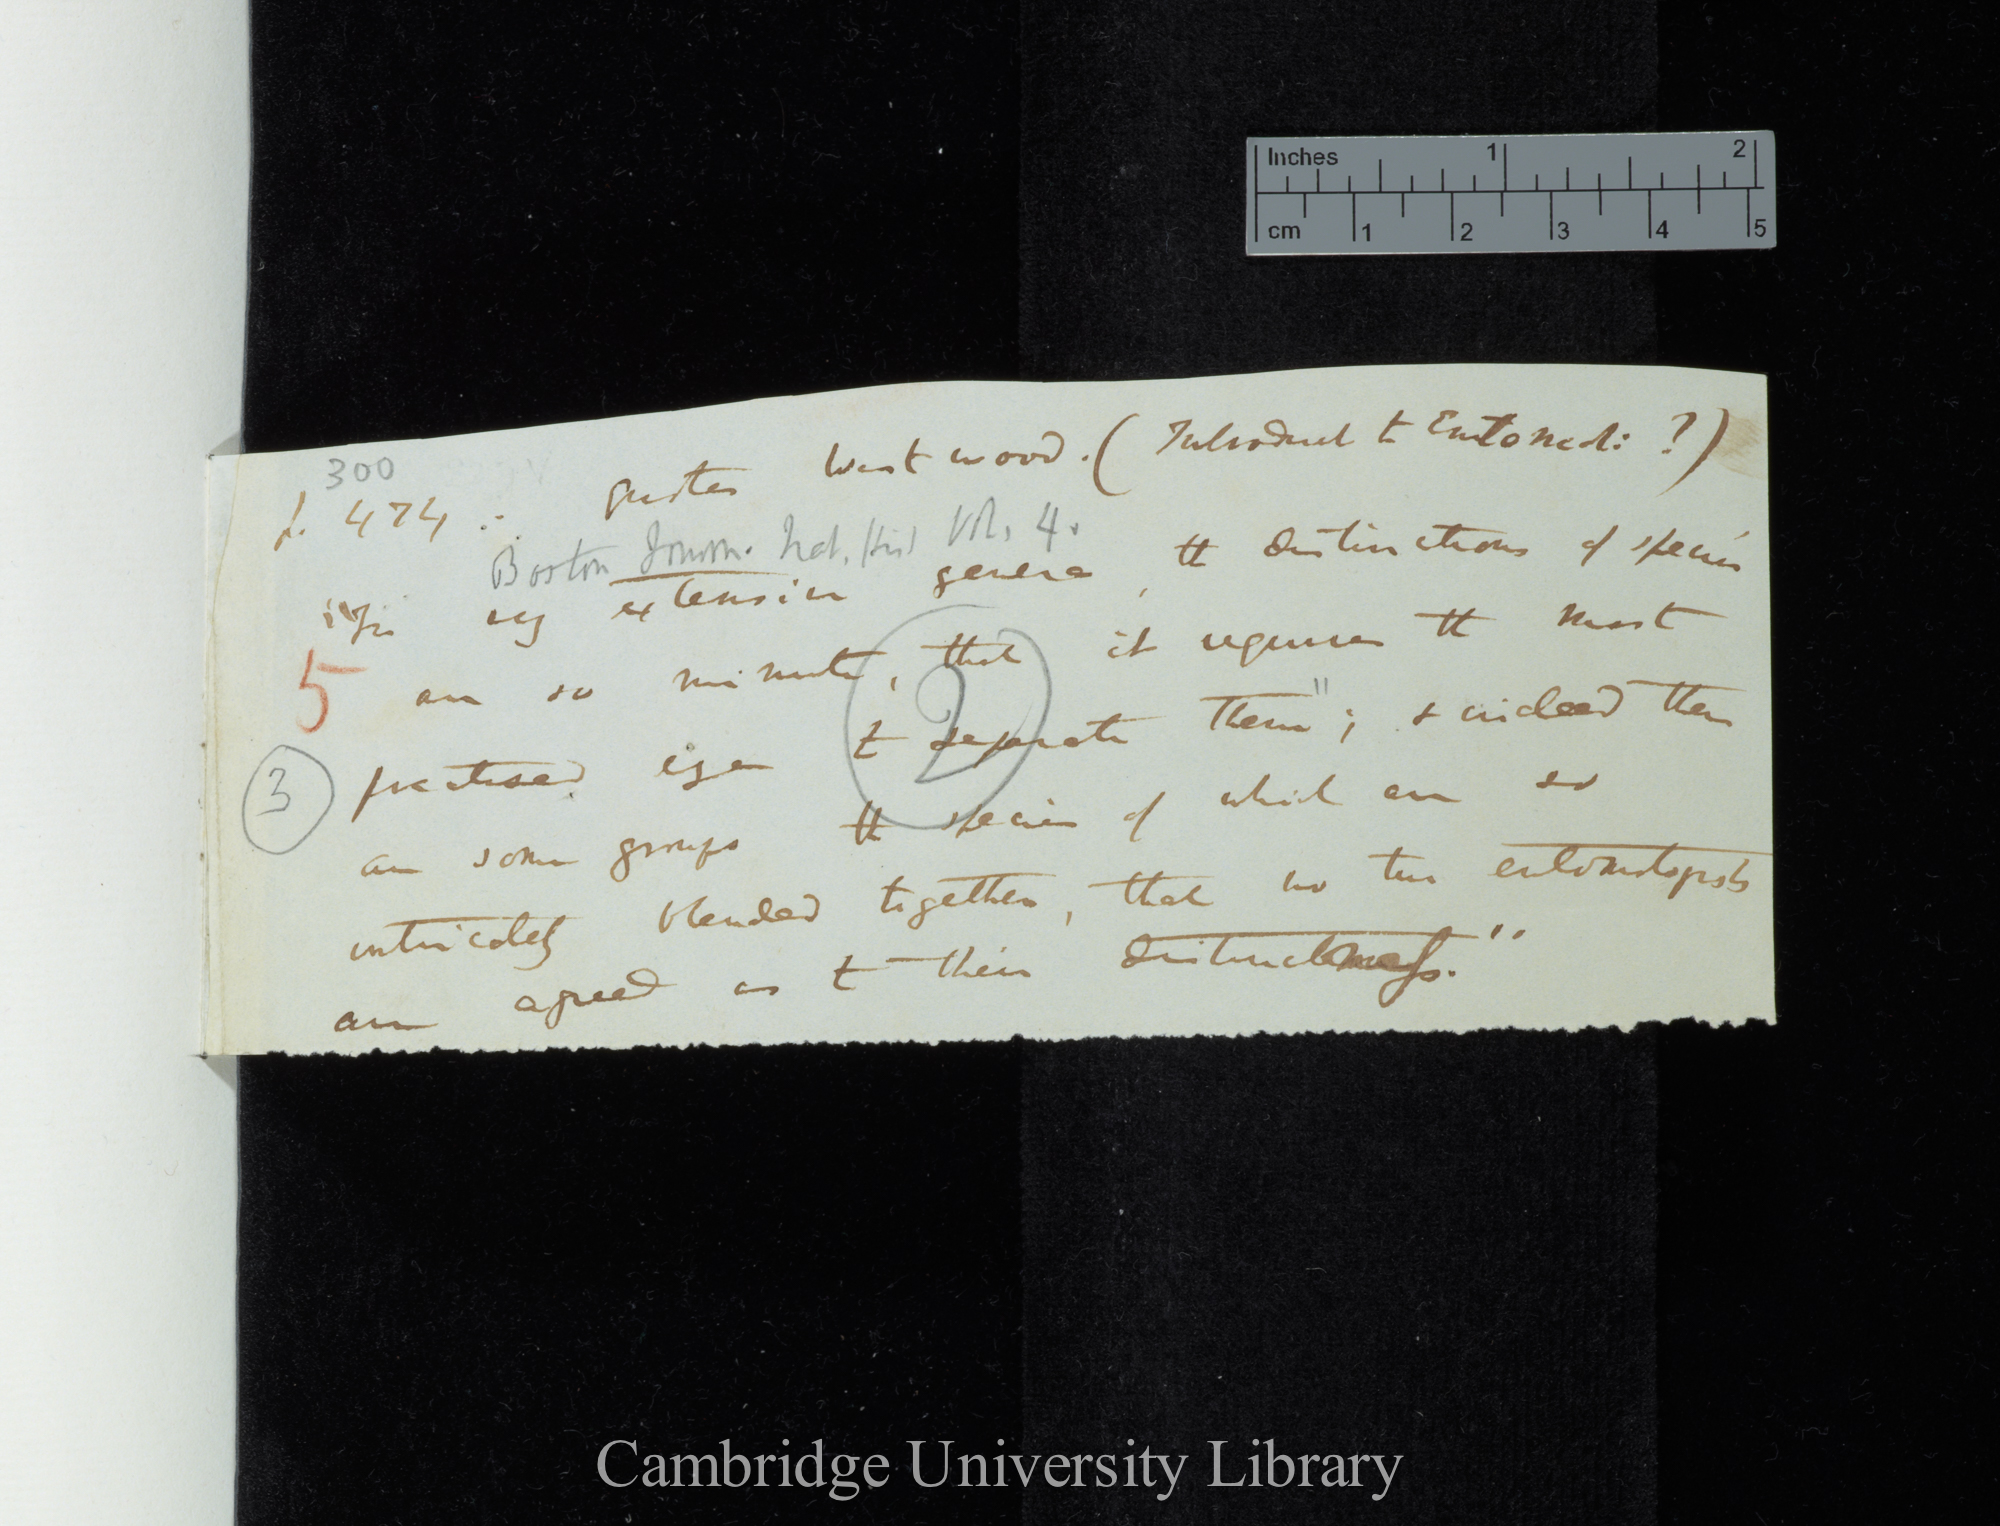 Inches 1 2
cm 1 2 3 4 5
300
p. 474. quotes Westwood. (Introduct to Entomol: ?)
Boston Journ. Nat. Hist Vol. 4.
"In very extensive genera, the distinctions of species
5 are so minute, that it requires the most
2
3 practised eye to separate them"; & indeed there
are some groups the species of which are so
intricately blended together, that no two entomologists
are agreed as to their distinctness."
Cambridge University Library